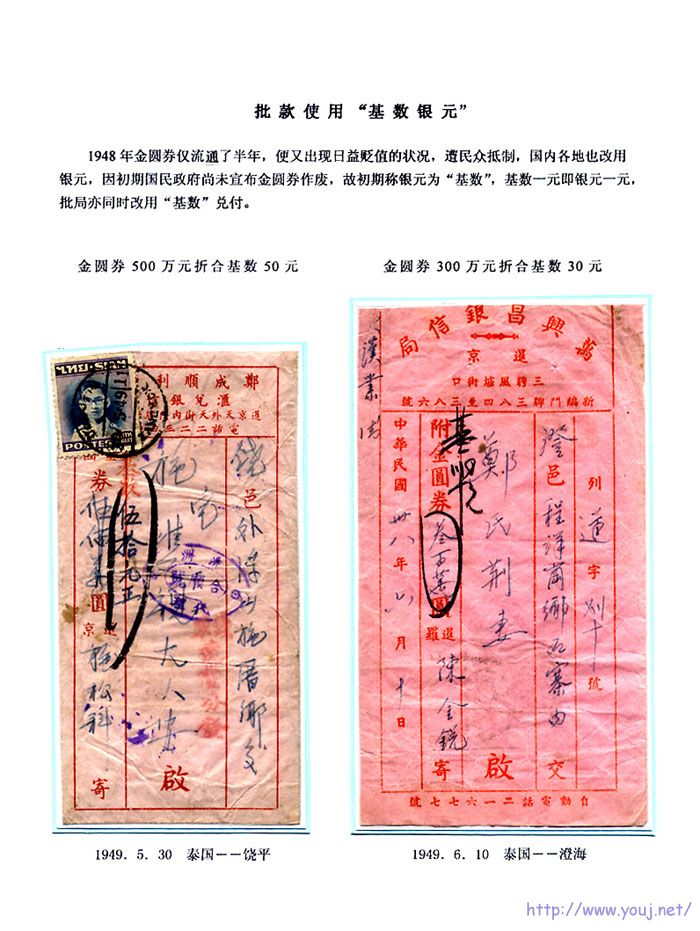 批款使用“基数银元”
1948年金圆券仅流通了半年，便又出现日益贬值的状况，遭民众抵制，国内各地也改用
银元，因初期国民政府尚未宣布金圆券作废，故初期称银元为“基数”，基数一元即银元一元，
批局亦同时改用“基数”兑付。
金圆券500万元折合基数50元
金圆券300万元折合基数30元
鄭成順利
滙兌銀
暹京天外天街內
電話二二三
饒邑
大人
啟
券
伍拾元正
圓
暹京
寄
POSTAGE
萬興昌銀信局
暹京
三聘風爐街口
新編門牌三八四至三八六號
列
字
號
澄邑程洋崗鄉
交
鄭氏荆妻
啟
附金圓券叁百萬圓
暹羅陳全銳寄
中華民國卅八年六月十日
自動電話二一六七七號
1949．5．30 泰国－－饶平
1949．6．10 泰国－－澄海
http://www.youj.net/